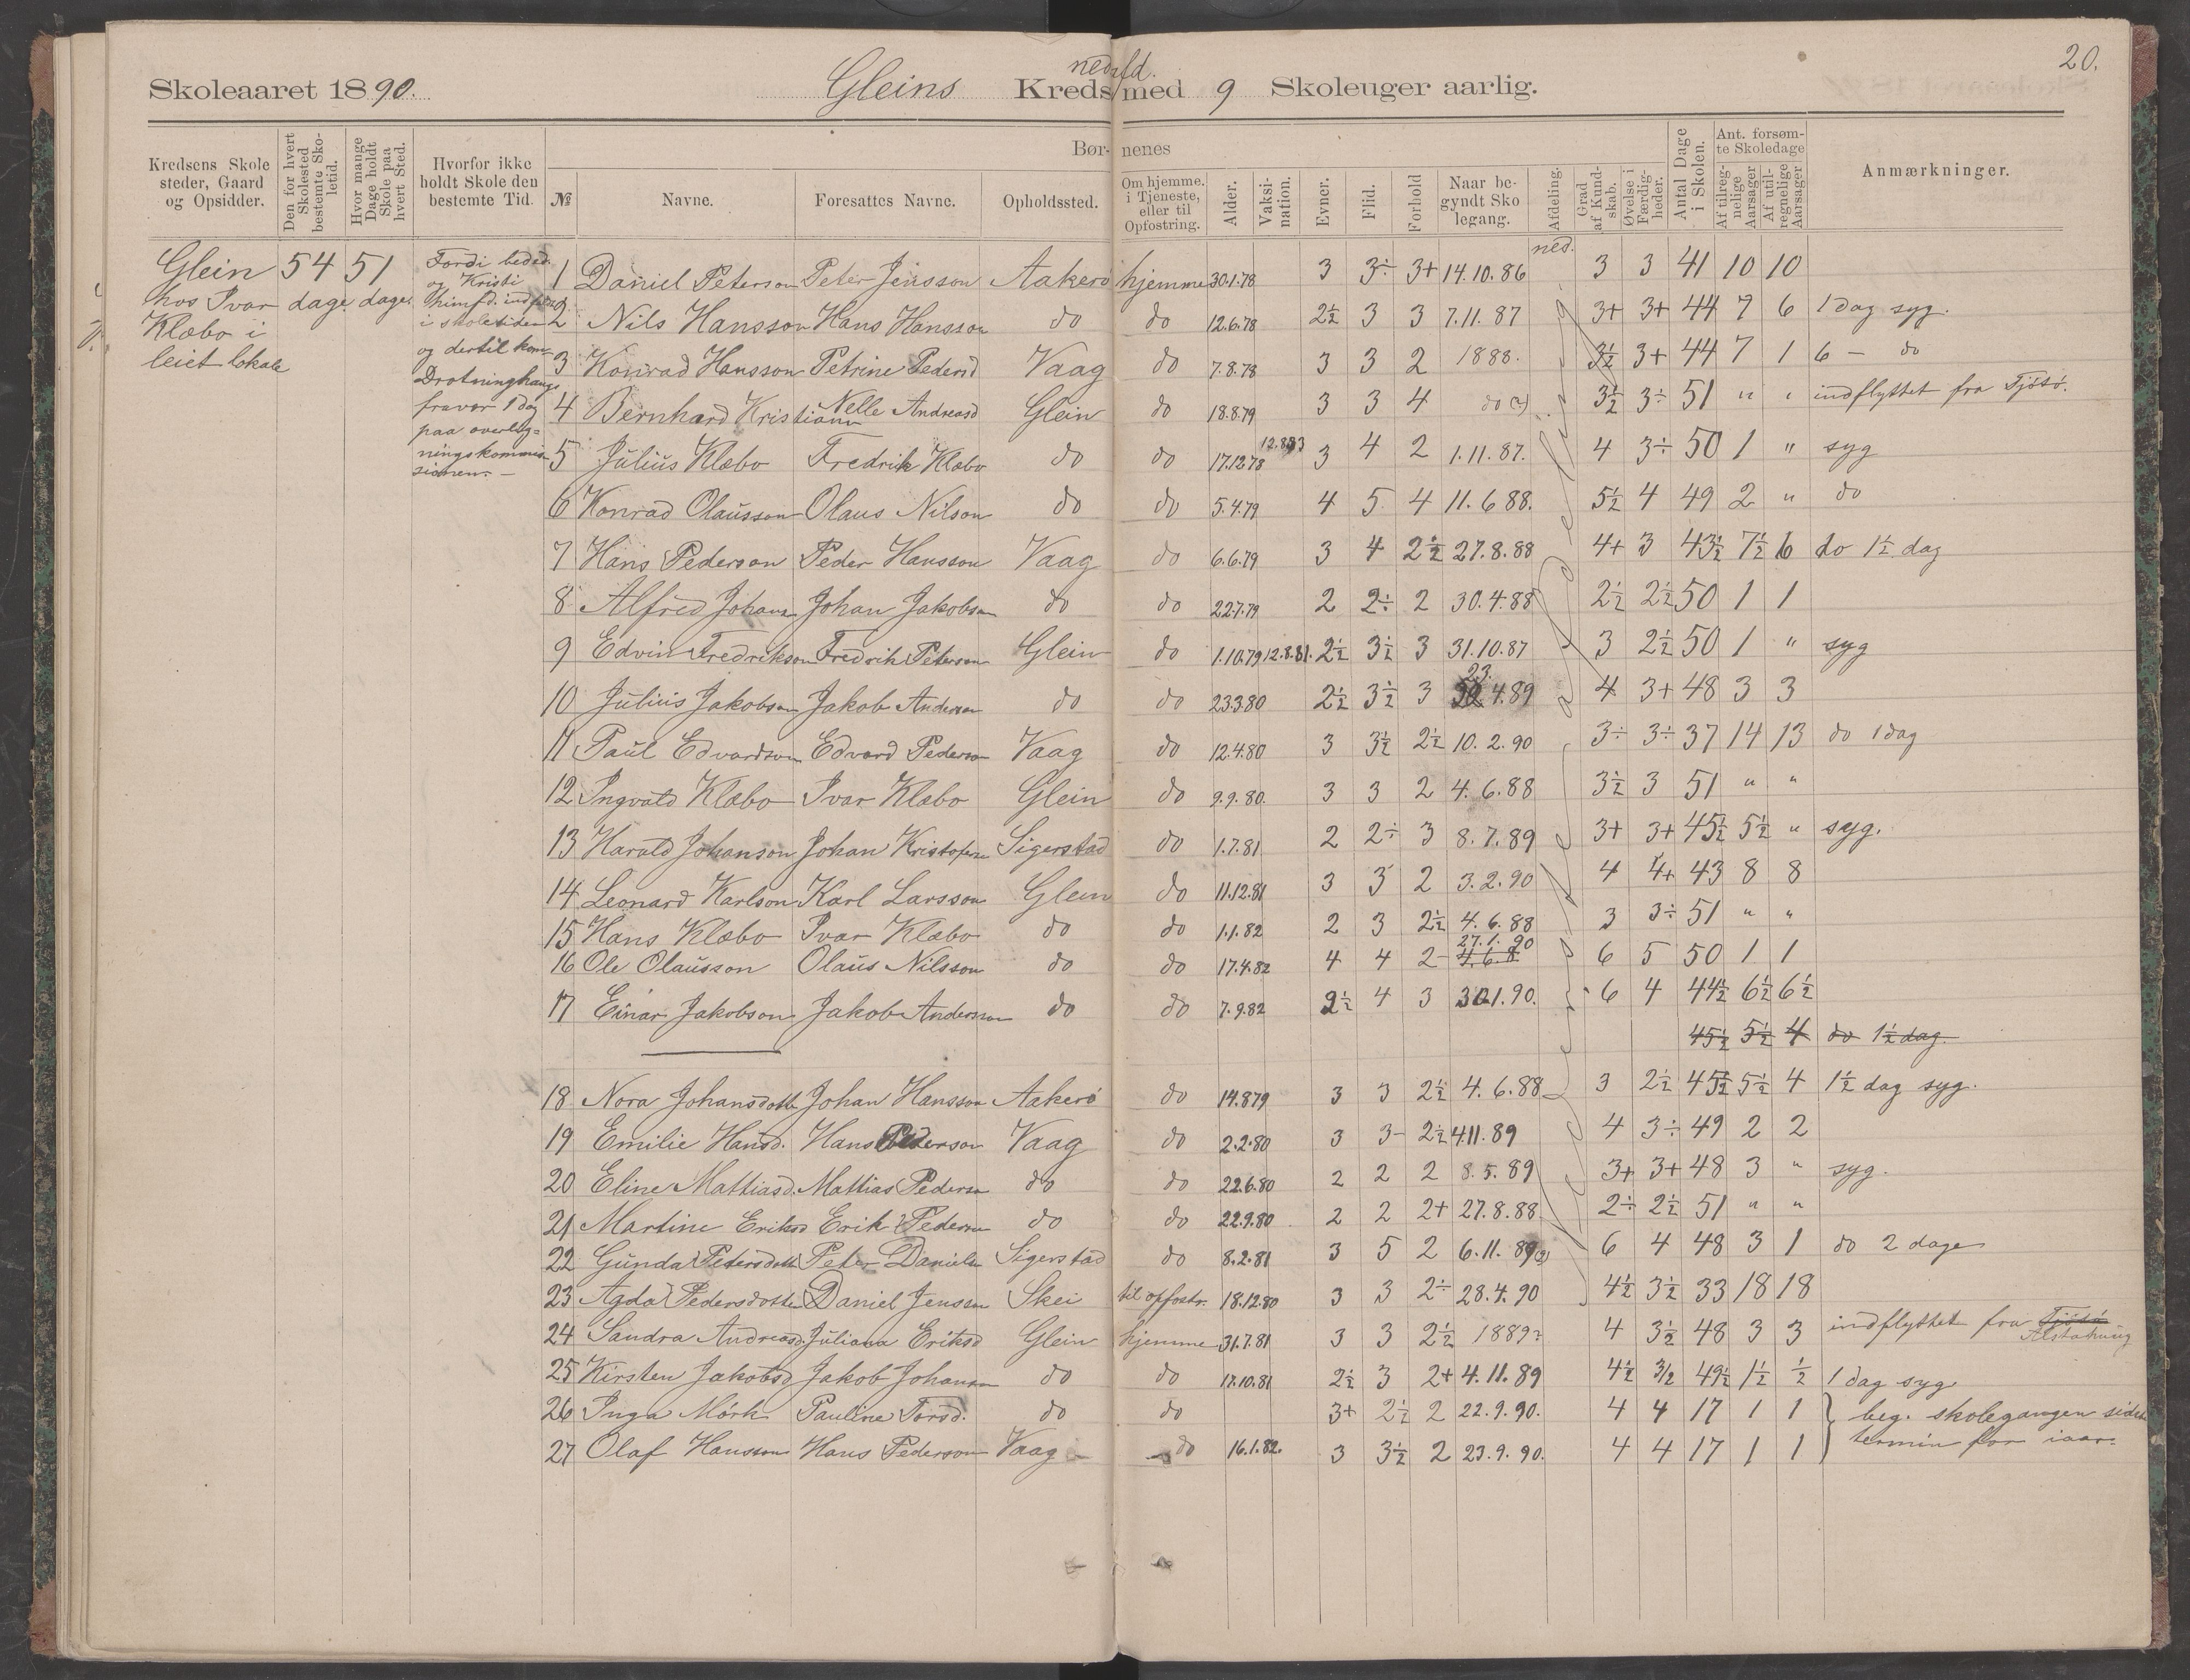 20.
Skoleaaret 1890. Gleins Kreds nedafd. med 9 Skoleuger aarlig.
Kredsens Skolesteder, Gaard og Opsidder.
Den for hvert Skolested bestemte Skoletid.
Hvor mange Dage holdt Skole paa hvert Sted.
Hvorfor ikke holdt Skole den bestemte Tid.
Børnenes
№ Navne. Foresattes Navne. Opholdssted. Om hjemme. i Tjeneste, eller til Opfostring. Alder. Vaksination. Evner. Flid. Forhold Naar begyndt Skolegang. Afdeling. Grad af Kundskab. Øvelse i Færdigheder. Antal Dage i Skolen. Ant. forsømte Skoledage Af tilregnelige Aarsager Af utilregnelige Aarsager Anmærkninger.
Glein 54 51
hos Ivar dage. dage.
Klæbo i
leiet lokale
Fordi beded.
og Kristi
himfd. indf
i skoletiden
og dertil kom
Drotninghaugs
fravær 1 dag
paa overlig=
ningskommis
sionen. —
ned.
1 Daniel Peterson Peter Jensson Aakerø hjemme 30.1.78 3 3÷ 3+ 14.10.86 3 3 41 10 10
2 Nils Hansson Hans Hansson do do 12.6.78 2½ 3 3 7.11.87 3+ 3+ 44 7 6 1 dag syg.
3 Konrad Hansson Petrine Pedersd Vaag do 7.8.78 3 3 2 1888. 3½ 3+ 44 7 1 6 — do
4 Bernhard Kristiann Nelle Andreasd Glein do 18.8.79 3 3 4 do (?) 3½ 3÷ 51 " " indflyttet fra Tjøtø.
5 Julius Klæbo Fredrik Klæbo do do 17.12.78 12.8.83 3 4 2 1.11.87. 4 3÷ 50 1 " syg
6 Konrad Olausson Olaus Nilson do do 5.4.79 4 5 4 11.6 88. 5½ 4 49 2 " do
7 Hans Pederson Peder Hansson Vaag do 6.6.79 3 4 2½ 27.8.88 4+ 3 43½ 7½ 6 do 1½ dag
8 Alfred Johans Johan Jakobsn do do 22.7.79 2 2÷ 2 30.4.88 2½ 2½ 50 1 1
9 Edvin Fredrikson Fredrik Peterson Glein do 1.10.79 12.8.81. 2½ 3½ 3 31.10.87 3 2½ 50 1 " syg
10 Julius Jakobsn Jakob Anderson do do 23.3.80 2½ 3½ 3 23. 4.89 4 3+ 48 3 3
11 Paul Edvardson Edvard Pederson Vaag do 12.4.80 3 3½ 2½ 10.2.90 3÷ 3÷ 37 14 13 do 1 dag
12 Ingvald Klæbo Ivar Klæbo Glein do 9.9.80. 3 3 2 4.6.88 3½ 3 51 " "
13 Harald Johanson Johan Kristofers Sigerstad do 1.7.81 2 2÷ 3 8.7.89 3+ 3+ 45½ 5½ " syg.
14 Leonard Karlson Karl Larsson Glein do 11.12.81 3 3 2 3.2.90 4 4+ 43 8 8
15 Hans Klæbo Ivar Klæbo do do 1.1.82 2 3 2½ 4.6.88 3 3÷ 51 " "
16 Ole Olausson Olaus Nilsson do do 17.4.82 4 4 2 27.1.90 4.6.8 6 5 50 1 1
17 Einar Jakobson Jakob Anderson do do 7.9.82 2½ 4 3 30.1.90. 6 4 44½ 6½ 6½
45½ 5½ 4 do 1½ dag
18 Nora Johansdotte Johan Hansson Aakerø do 14.8.79 3 3 2½ 4.6.88 3 2½ 45½ 5½ 4 1½ dag syg.
19 Emilie Hansd. Hans Pederson Vaag do 2.2.80 3 3- 2½ 4.11.89 4 3÷ 49 2 2
20 Eline Mattiasd. Mattias Pederson do do 22.6.80 2 2 2 8.5.89 3+ 3+ 48 3 " syg.
21 Martine Eriksd Erik Pederson do do 22.9.80 2 2 2+ 27.8.88 2÷ 2½ 51 " "
22 Gunda Petersdotte Peter Danielsn Sigerstad do 8.2.81 3 5 2 6.11.89(?) 6 4 48 3 1 do 2 dage
23 Agda Pedersdotte Daniel Jensen Skei til opfostr. 18.12.80 3 3 2÷ 28.4.90 4½ 3½ 33 18 18
24 Sandra Andreasd. Juliana Eriksd Glein hjemme 31.7.81 3 3 2½ 1889? 4 3½ 48 3 3 indflyttet fra Tjøtø Alstahaug
25 Kirsten Jakobsd Jakob Johansn do do 17.10.81 2½ 3 2+ 4.11.89 4½ 3½ 49½ 1½ ½ 1 dag syg
26 Inga Mørk Pauline Torsd. do do 3+ 2½ 2 22.9.90. 4 4 17 1 1 } beg. skolegangen sidste
27 Olaf Hansson Hans Pederson Vaag do 16.1.82. 3 3½ 2 23.9.90. 4 4 17 1 1 } termin for iaar.